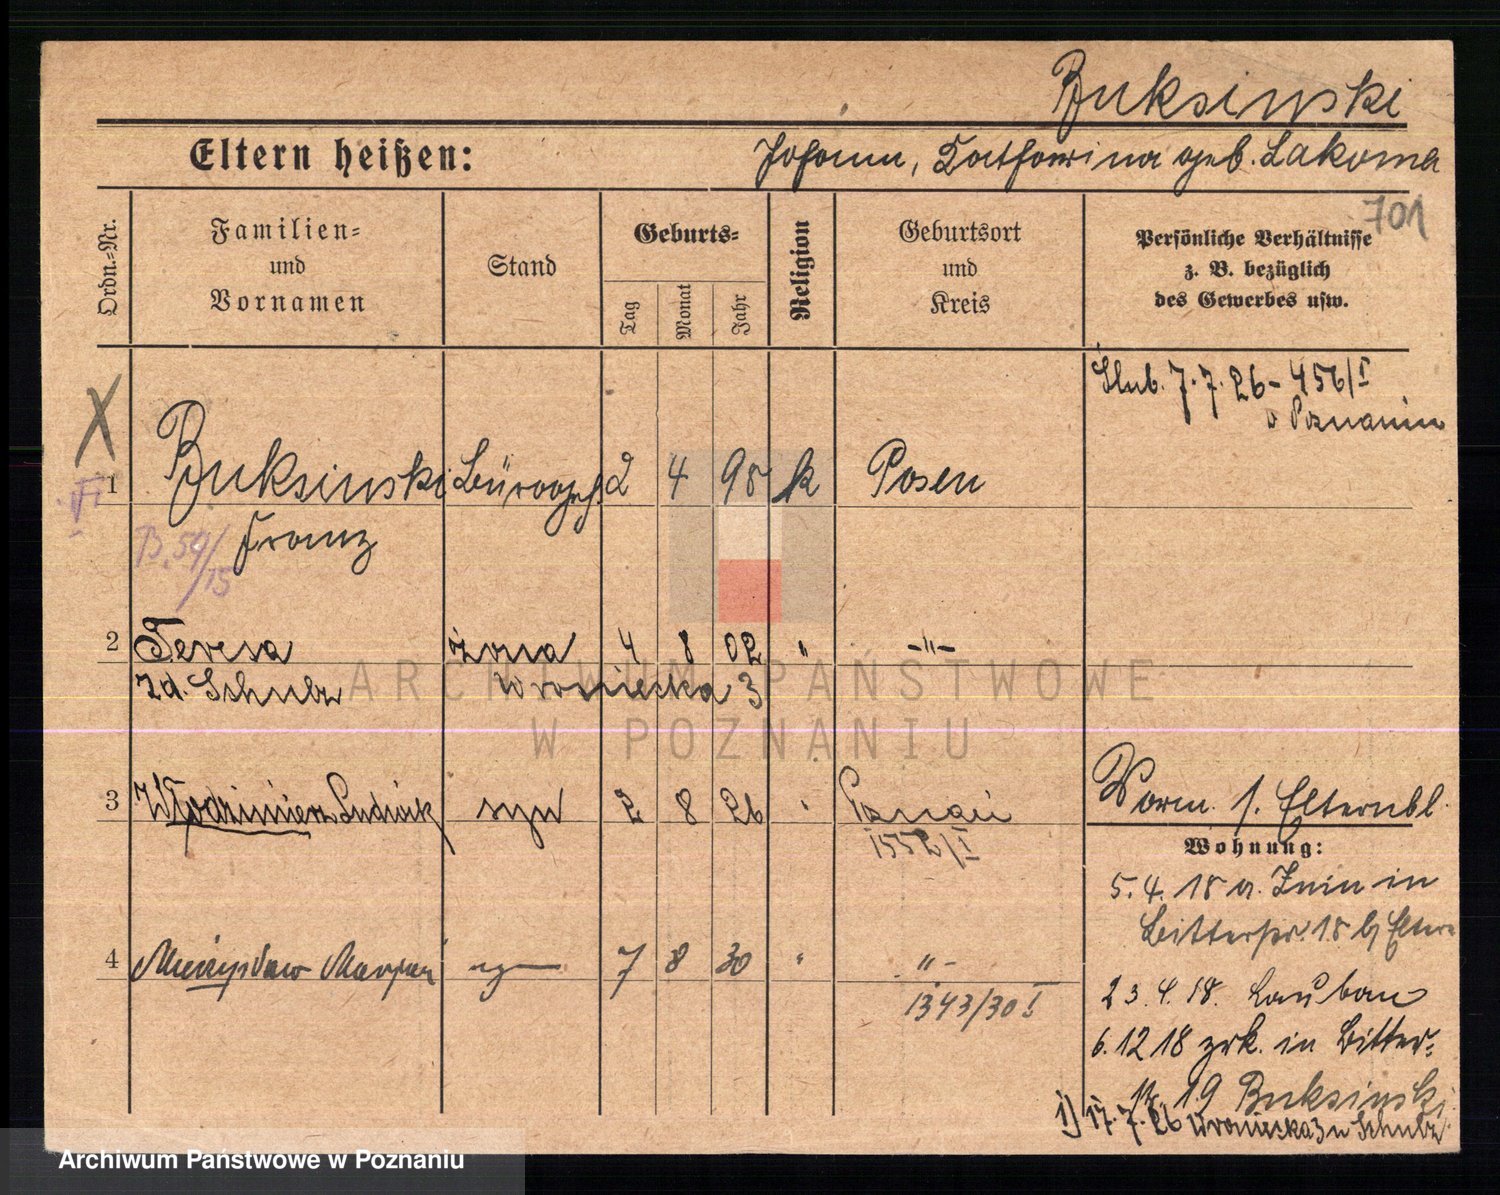 Buksinski
Eltern heißen: Johann, Katharina geb. Lakoma
701
Ordn.-Nr.
Familien- und Vornamen
Stand
Geburts-
Tag
Monat
Jahr
Religion
Geburtsort und Kreis
Persönliche Verhältnisse
z. B. bezüglich
des Gewerbes usw.
Ślub. 7.7.26 - 456/I
w Poznaniu
1 Buksinski Bürogeh. 2 4 98 k Posen
Franz
B. 54/15
2 Teresa żona 4 8 02 " -"-
zd. Schulz Wroniecka 3
3 Włodzimierz Ludwik syn 2 8 26 " Poznań
1552/I
Vorm. s. Elternbl.
Wohnung:
5.4.18 a. Znin in
Bitterstr. 18 b/ Eltern
4 Mieczysław Marjan -"- 7 8 30 " -"-
1343/30 I
23.4.18. Lauban
6.12 18 zrk. in Bitter-
str. 19 Buksinski
1) 17.7.26 Wroniecka 3 u Schulz
Archiwum Państwowe w Poznaniu
ARCHIWUM PAŃSTWOWE
W POZNANIU